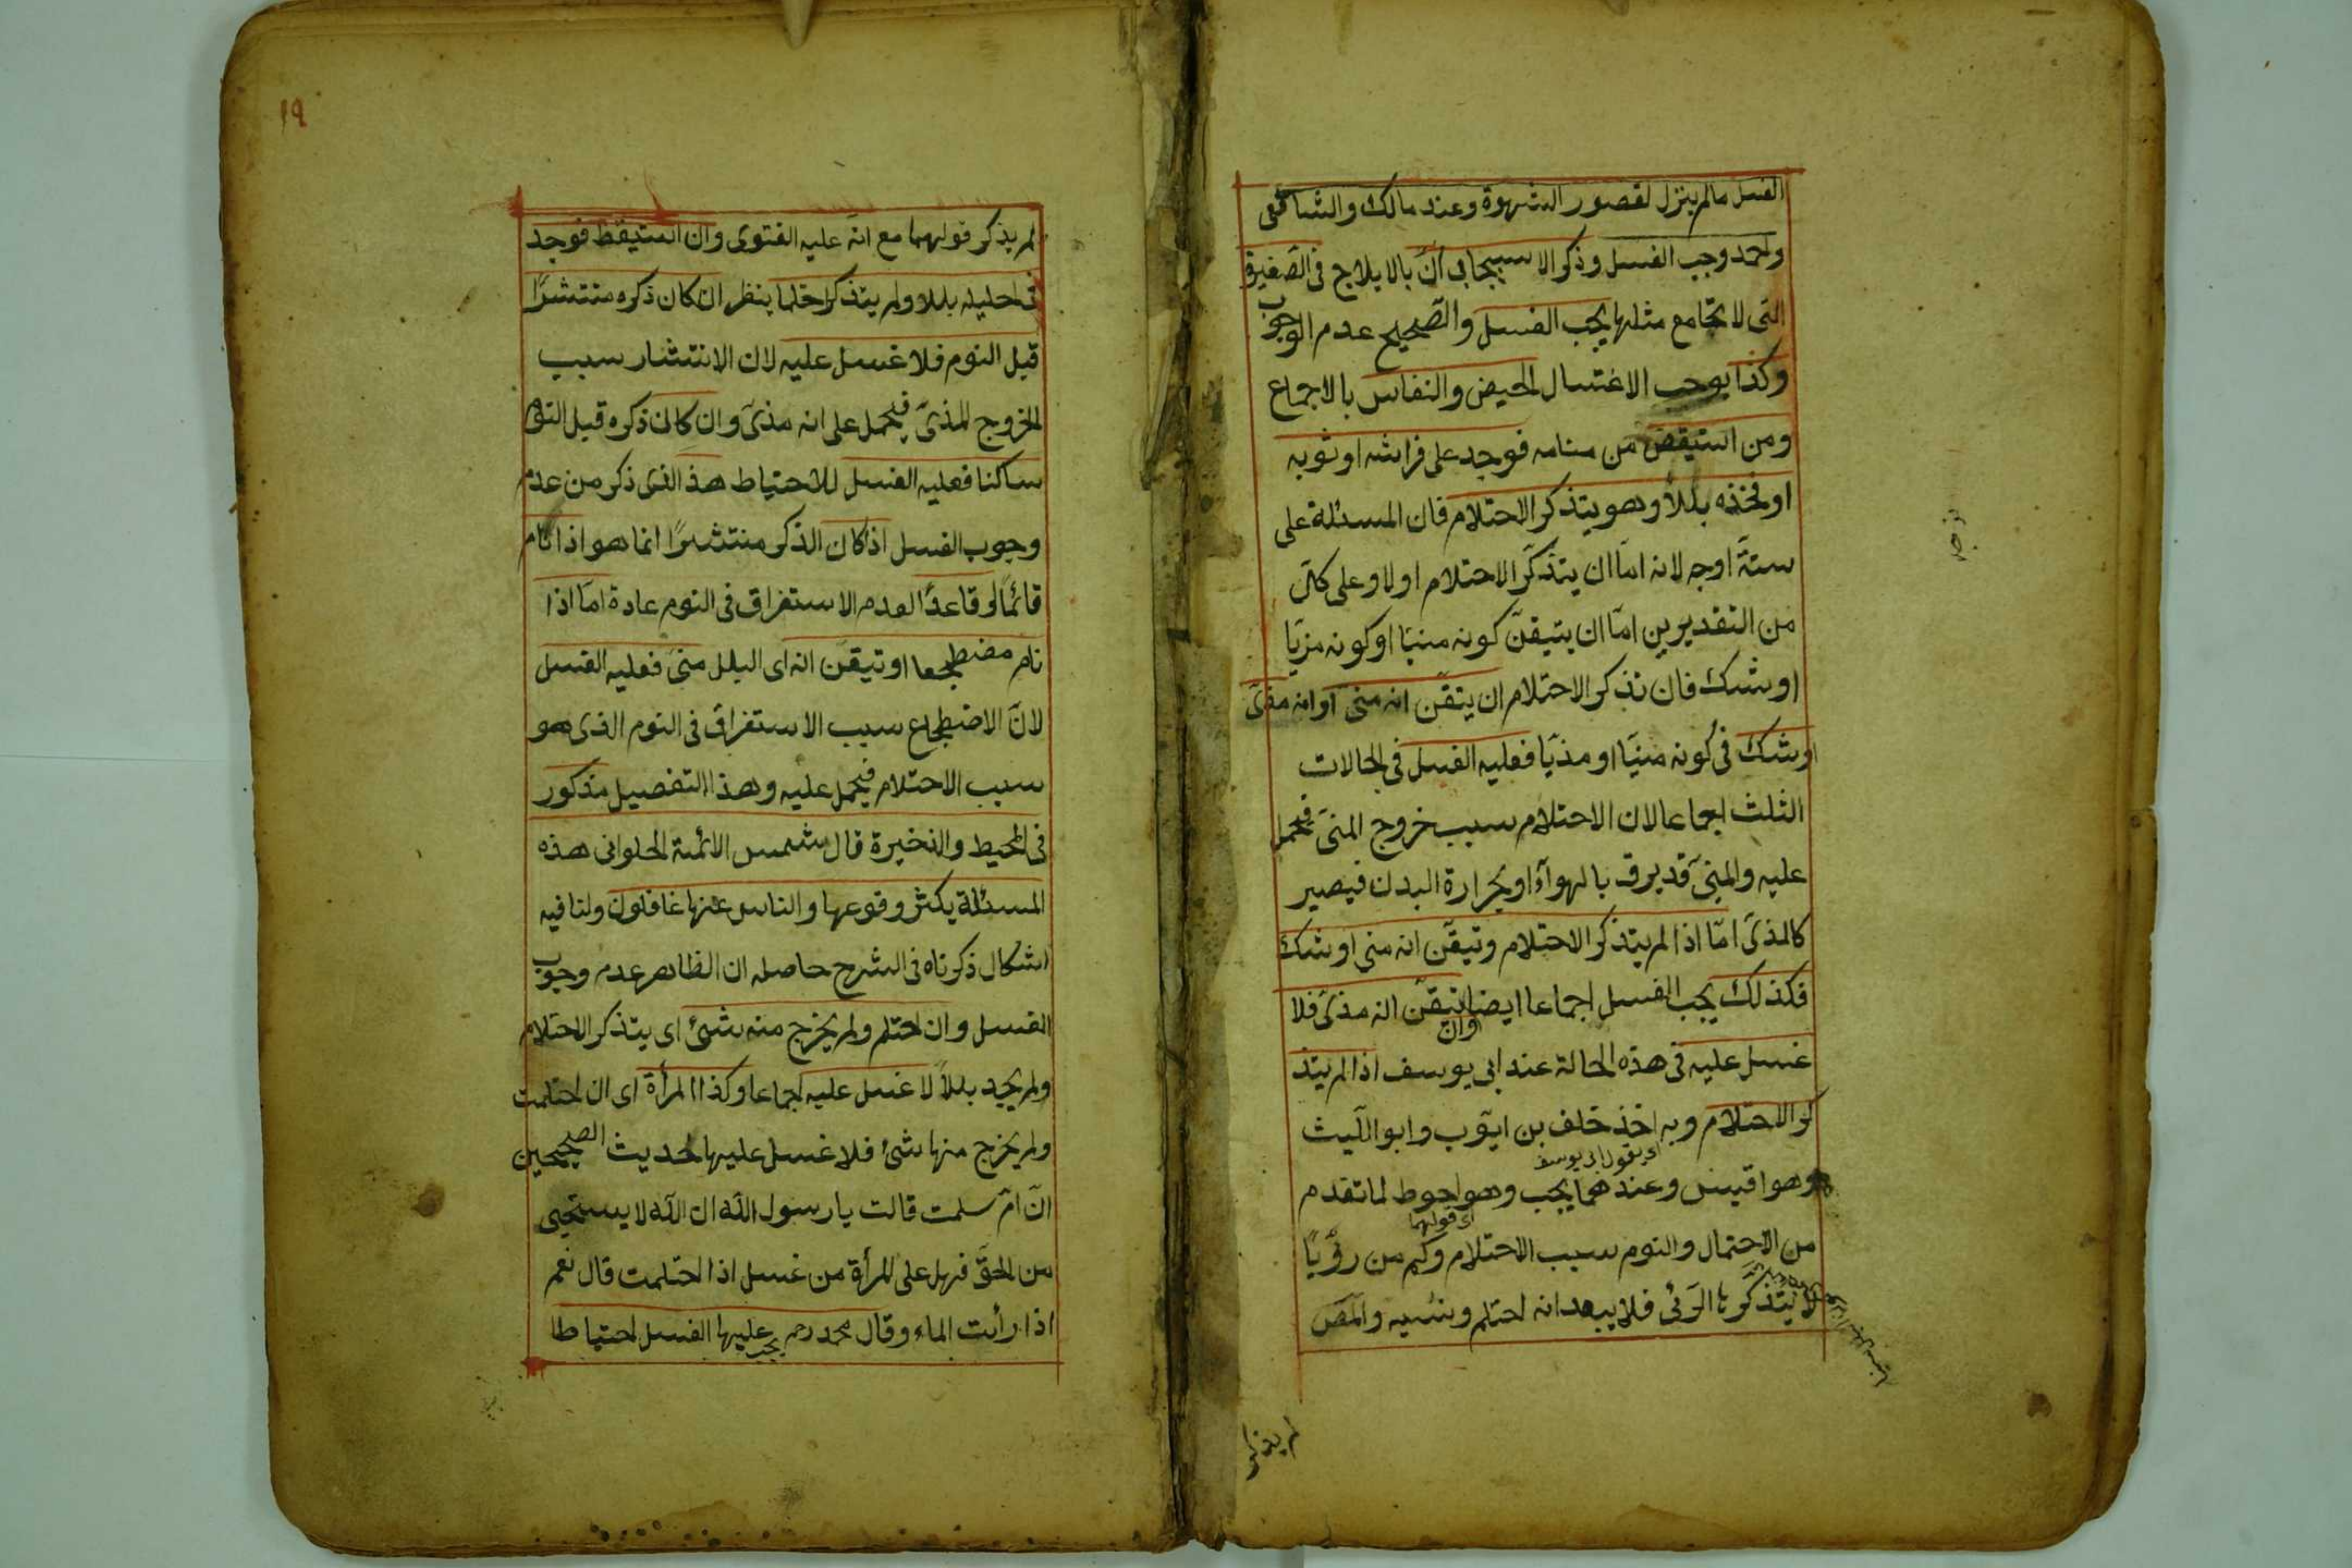 الغسل مالم ينزل لقصور الشهوة وعند مالك والشافعى
واحمد وجب الغسل وذكر الاسبيجابى انّ بالايلاج فى الصّغيرة
التى لا تجامع مثلها يجب الغسل والصّحيح عدم الوجوب
وكذا يوجب الاغتسال الحيض والنفاس بالاجماع
ومن استيقض من منامه فوجد على فراشه او ثوبه
او فخذه بللاً وهو يتذكر الاحتلام فان المسئلة على
ستّة اوجه لانه امّا ان يتذكّر الاحتلام اولا وعلى كلّ
من التقديرين امّا ان يتيقّن كونه منيّا او كونه مزيّا
او شك فان تذكر الاحتلام ان يتقّن انه منى او انه مذىّ
او شك فى كونه منيّا او مذيّا فعليه الغسل فى الحالات
الثلث اجماعا لان الاحتلام سبب خروج المنىّ فيحمل
عليه والمنىّ قد يرق بالهوآء او بحرارة البدن فيصير
كالمذىّ امّا اذا لم يتذكر الاحتلام وتيقّن انه منى او شك
فكذلك يجب الغسل اجماعا ايضا تيقّن انه مذىّ فلا
وان
غسل عليه فى هذه الحالة عند ابى يوسف اذا لم يتذ
كر الاحتلام وبه اخذ خلف بن ايّوب وابو اللّيث
اى بقول ابى يوسف
وهو اقيس وعندهما يجب وهو احوط لما تقدم
اى قولهما
من الاحتمال والنوم سبب الاحتلام وكم من رؤيًا
لا يتذكّرها الرّئى فلا يبعد انه احتلم ونسيه والمص
لم يذكر
١٩
لم يذكر قولهما مع انّه عليه الفتوى وان استيقظ فوجد
فى احليله بللا ولم يتذكر احتلما ينظر ان كان ذكره منتشرًا
قبل النوم فلا غسل عليه لان الانتشار سبب
لخروج المذىّ فيحمل على انه مذىّ وان كان ذكره قبل النوم
ساكنا فعليه الغسل للاحتياط هذ الذى ذكر من عدم
وجوب الغسل اذا كان الذكر منتشرًا انما هو اذا نام
قائمًا او قاعدًا لعدم الاستغراق فى النوم عادة امّا اذا
نام مضطجعا او تيقّن انه اى البلل منىّ فعليه الغسل
لانّ الاضطجاع سبب الاستغراق فى النوم الذى هو
سبب الاحتلام فيحمل عليه وهذا التفصيل مذكور
فى المحيط والذخيرة قال شمس الائمة الحلوانى هذه
المسئلة يكثر وقوعها والناس عنها غافلون ولنا فيه
اشكال ذكرناه فى الشرح حاصله ان الظاهر عدم وجوب
الغسل وان احتلم ولم يخرج منه شئ اى يتذكر الاحتلام
ولم يجد بللاً لا غسل عليه اجماعا وكذا المرأة اى ان احتلمت
ولم يخرج منها شئ فلا غسل عليها لحديث الصحيحين
انّ امّ سلمت قالت يا رسول اللّه ان اللّه لا يستحيى
من الحقّ فهل على المرأة من غسل اذا احتلمت قال نعم
اذا رأت الماء وقال محمد رحم يجب عليها الغسل احتياطا